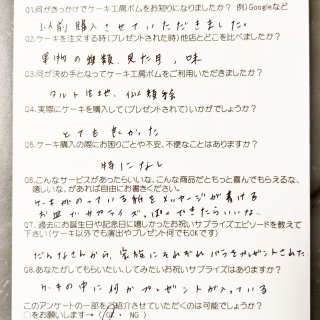 01.何がきっかけでケーキ工房ボムをお知りになりましたか？ 例)Googleなど
以前購入させていただきました。
02.ケーキを注文する時(プレゼントされた時)他店とどこを比べましたか？
果物の種類、見た目、味
03.何が決め手となってケーキ工房ボムをご利用いただきましたか？
タルト生地、
04.実際にケーキを購入して(プレゼントされて)いかがでしょうか？
とても良かった
05.ケーキ購入の際にお困りごとや不安、不便なことはありますか？
特になし
06.こんなサービスがあったらいいな、こんな商品だともっと喜んでもらえるな、
嬉しいな、があれば自由にお書きください。
ケーキがのっている紙をメッセージが書ける
お皿でサプライズ。ぽくできたらいいな。
07.過去にお誕生日や記念日に嬉しかったお祝いサプライズエピソードを教えて
下さい(ケーキ以外でも演出やプレゼント何でもOKです)
だんなさんから、家族にそれぞれバラをプレゼントされた。
08.あなたがしてもらいたい、してみたいお祝いサプライズはありますか？
ケーキの中に何かプレゼントが入っている
このアンケートの一部をご紹介させていただくのは可能でしょうか？
○をお願いします→ (OK ・ NG )